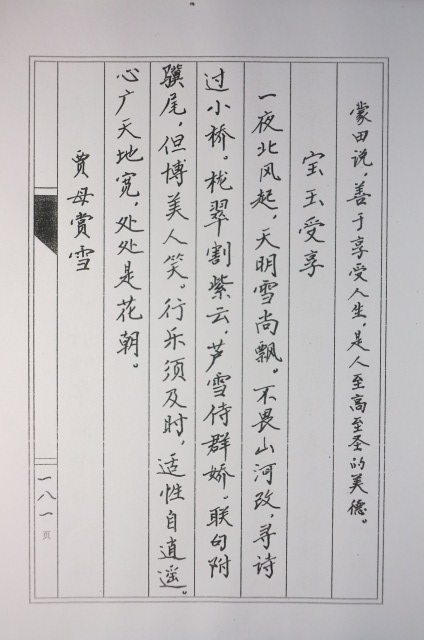 蒙田说，善于享受人生，是人至高至圣的美德。
宝玉受享
一夜北风起，天明雪尚飘。不畏山河改，寻诗
过小桥。栊翠割紫云，芦雪侍群娇。联句附
骥尾，但博美人笑。行乐须及时，适性自逍遥。
心广天地宽，处处是花朝。
贾母赏雪
一八一
页